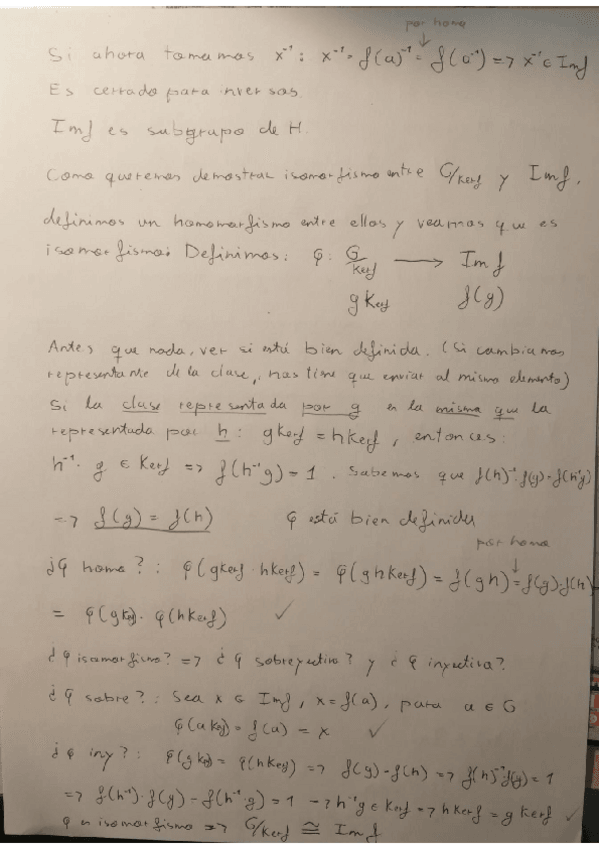 por homo
Si ahora tomamos x⁻¹: x⁻¹ = f(a)⁻¹ = f(a⁻¹) => x⁻¹ ∈ Imf
Es cerrado para inversos.
Imf es subgrupo de H.
Como queremos demostrar isomorfismo entre G/Kerf y Imf,
definimos un homomorfismo entre ellos y veamos que es
isomorfismo: Definimos: φ: G/Kerf ⟶ Imf
gKerf f(g)
Antes que nada, ver si está bien definida. (Si cambiamos
representante de la clase, nos tiene que enviar al mismo elemento)
Si la clase representada por g es la misma que la
representada por h: gKerf = hKerf, entonces:
h⁻¹·g ∈ Kerf => f(h⁻¹g) = 1. Sabemos que f(h)⁻¹·f(g) = f(h⁻¹g)
=> f(g) = f(h) φ está bien definida
por homo
¿φ homo?: φ(gKerf·hKerf) = φ(ghKerf) = f(gh) = f(g)·f(h)
= φ(gKerf)·φ(hKerf) ✓
¿φ isomorfismo? => ¿φ sobreyectiva? y ¿φ inyectiva?
¿φ sobre?: Sea x ∈ Imf, x = f(a), para a ∈ G
φ(aKerf) = f(a) = x ✓
¿φ iny?: φ(gKerf) = φ(hKerf) => f(g) = f(h) => f(h)⁻¹·f(g) = 1
=> f(h⁻¹)·f(g) = f(h⁻¹g) = 1 -> h⁻¹g ∈ Kerf => hKerf = gKerf ✓
φ es isomorfismo => G/Kerf ≅ Imf